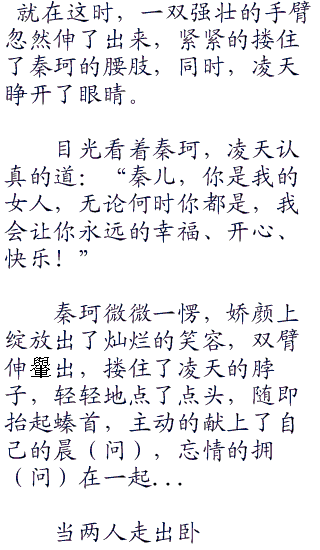 就在这时，一双强壮的手臂
忽然伸了出来，紧紧的搂住
了秦珂的腰肢，同时，凌天
睁开了眼睛。
目光看着秦珂，凌天认
真的道：“秦儿，你是我的
女人，无论何时你都是，我
会让你永远的幸福、开心、
快乐！”
秦珂微微一愣，娇颜上
绽放出了灿烂的笑容，双臂
伸出，搂住了凌天的脖
子，轻轻地点了点头，随即
抬起螓首，主动的献上了自
己的晨（问），忘情的拥
（问）在一起...
当两人走出卧